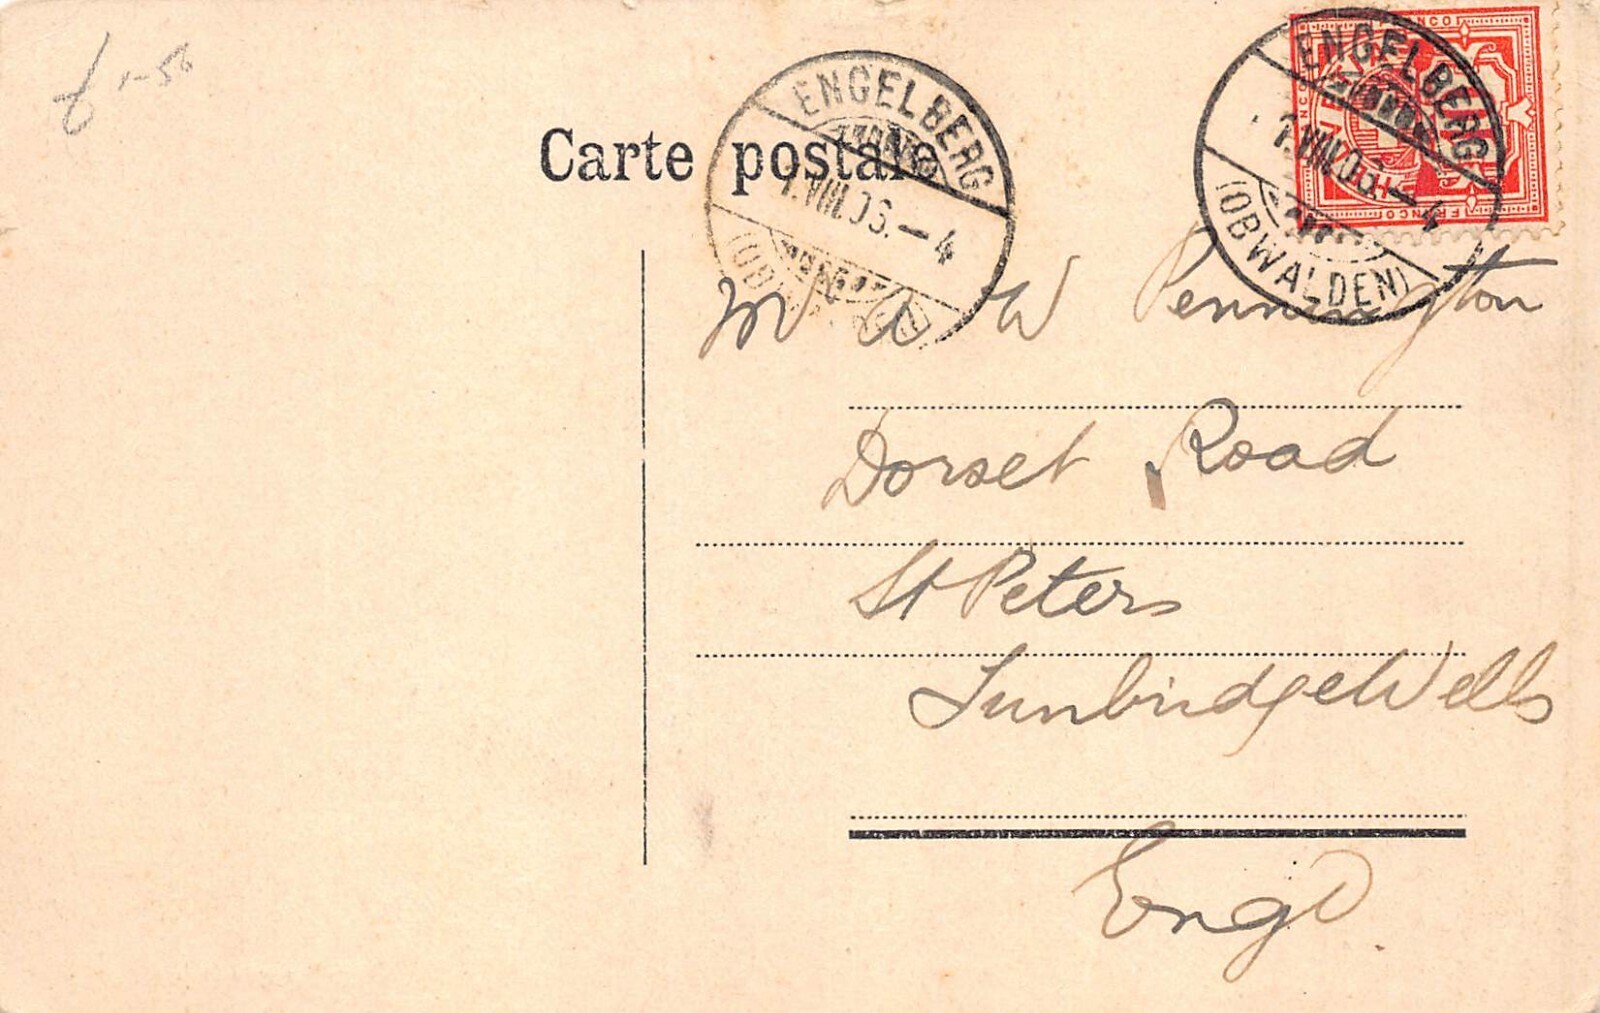 Carte postale
ENGELBERG
1.VIII.06.–4
ENGELBERG
1.VIII.06.–4
(OBWALDEN)
FRANCO
Mr A W Pennington
Dorset Road
St Peters
Tunbridge Wells
Engd